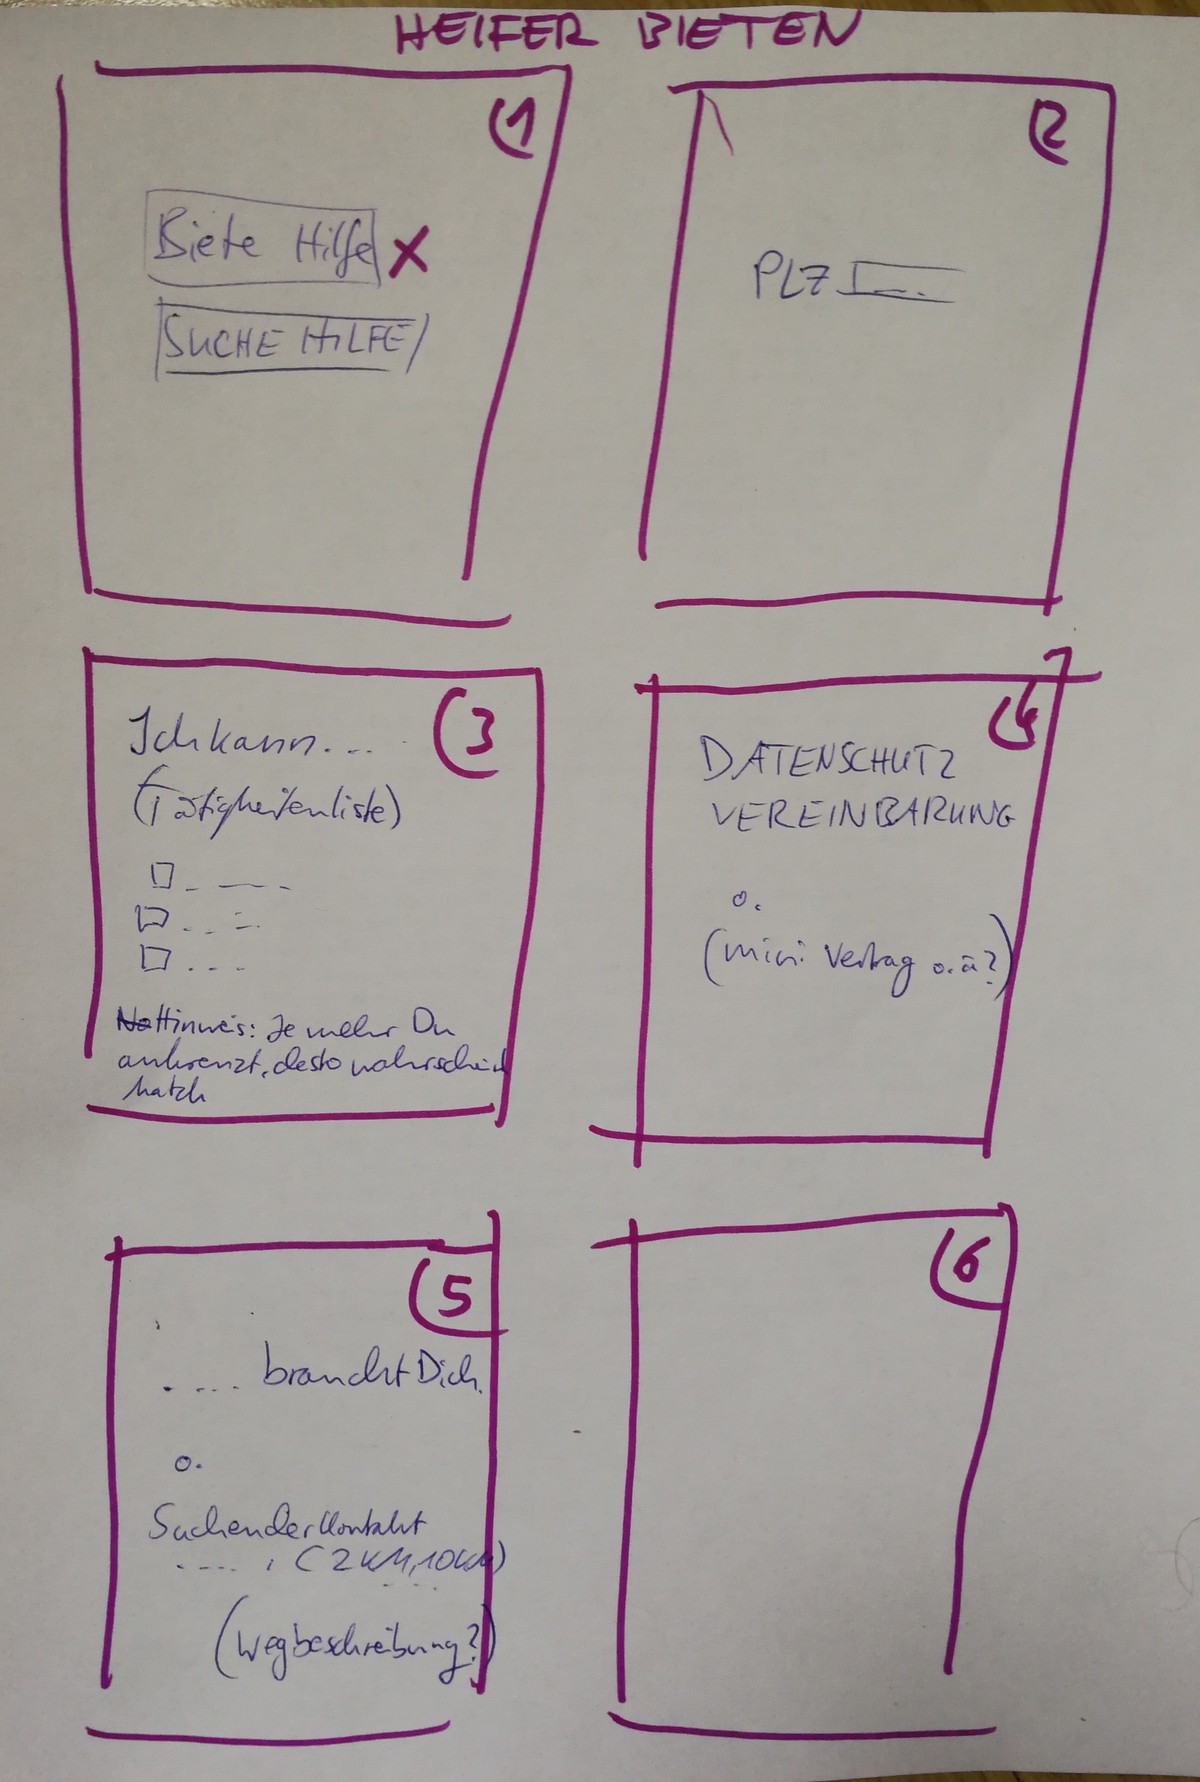 HELFER BIETEN
1
Biete Hilfe X
SUCHE HILFE
2
PLZ
3
Ich kann....
(Tätigkeitenliste)
Hinweis: Je mehr Du
ankreuzt, desto wahrscheinl
Match
4
DATENSCHUTZ
VEREINBARUNG
o.
(mini Vertrag o.ä?)
5
.... braucht Dich.
o.
Suchender Kontakt
...., (2 KM, 10 KM)
(Wegbeschreibung?)
6